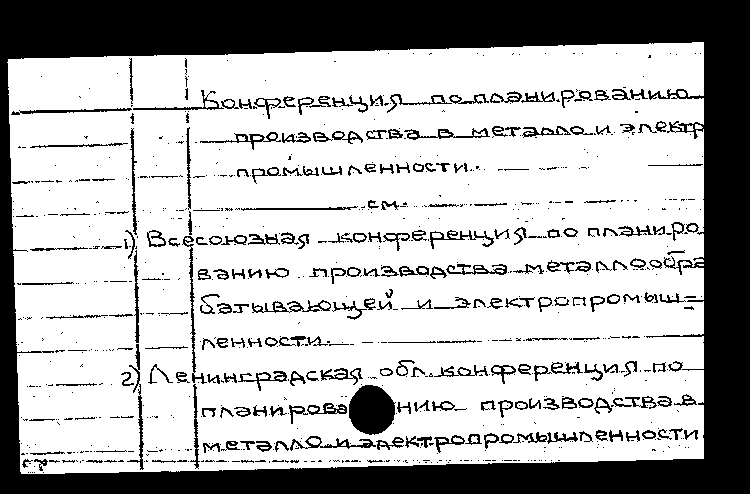 Конференция по планированию
производства в металло и электр
промышленности.
см.
1) Всесоюзная конференция по планиро
ванию производства металлообра
батывающей и электропромыш=
ленности.
2) Ленинградская обл. конференция по
планирова нию производства в
металло и электропромышленности.